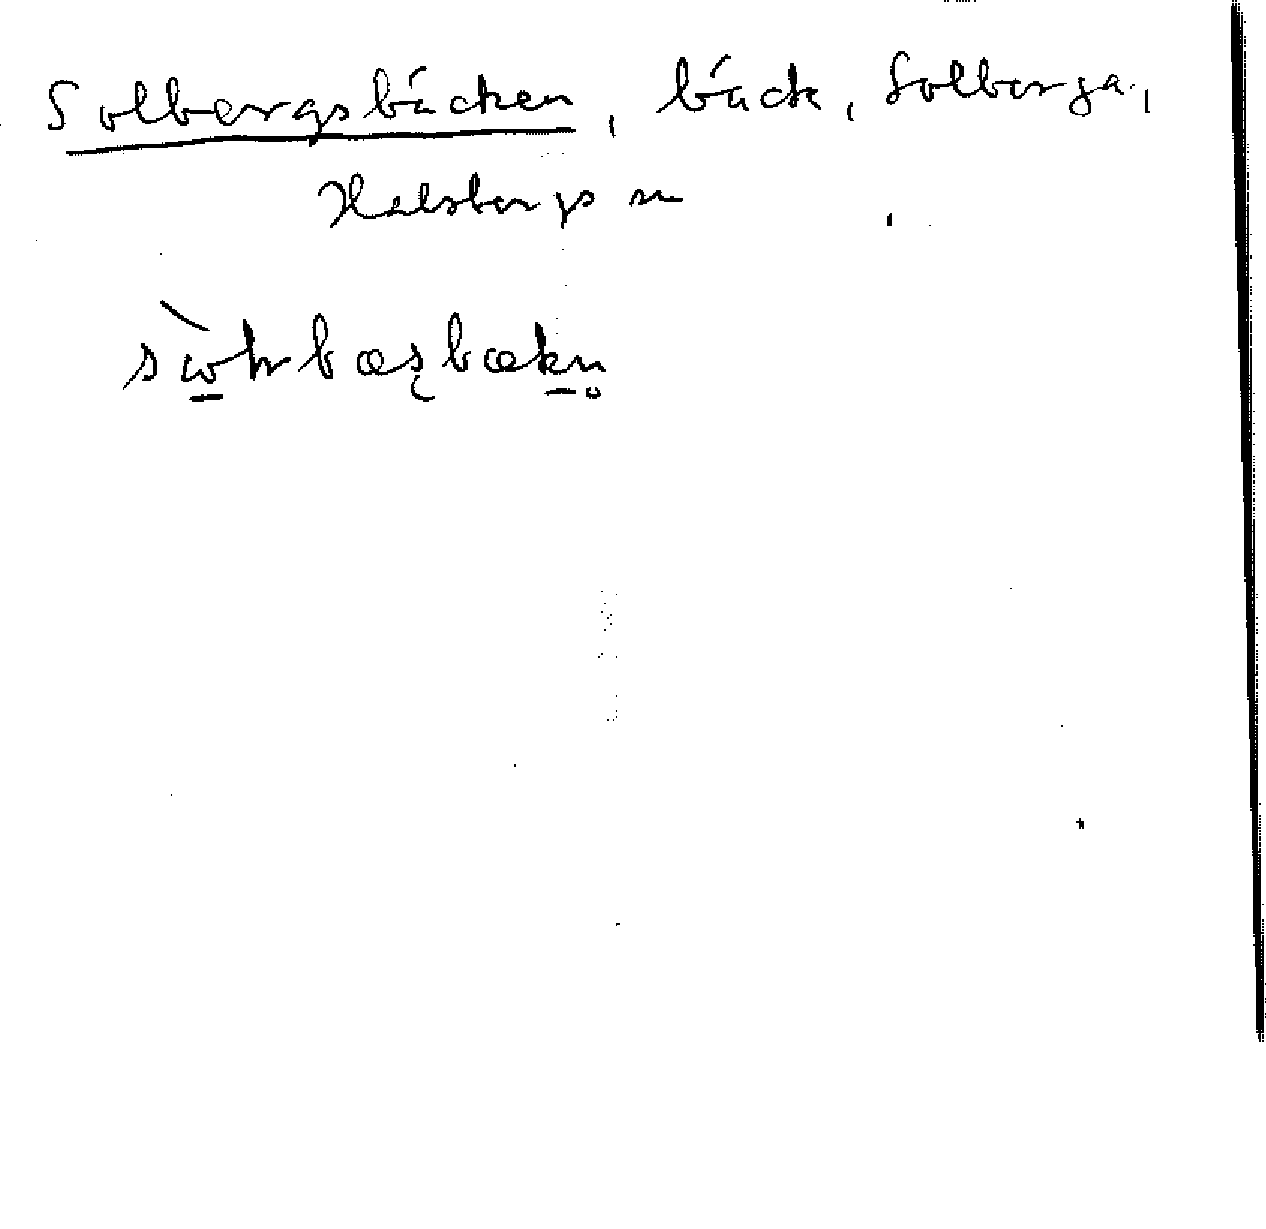 Solbergsbäcken, bäck, Solberga,
Halsbergs sn